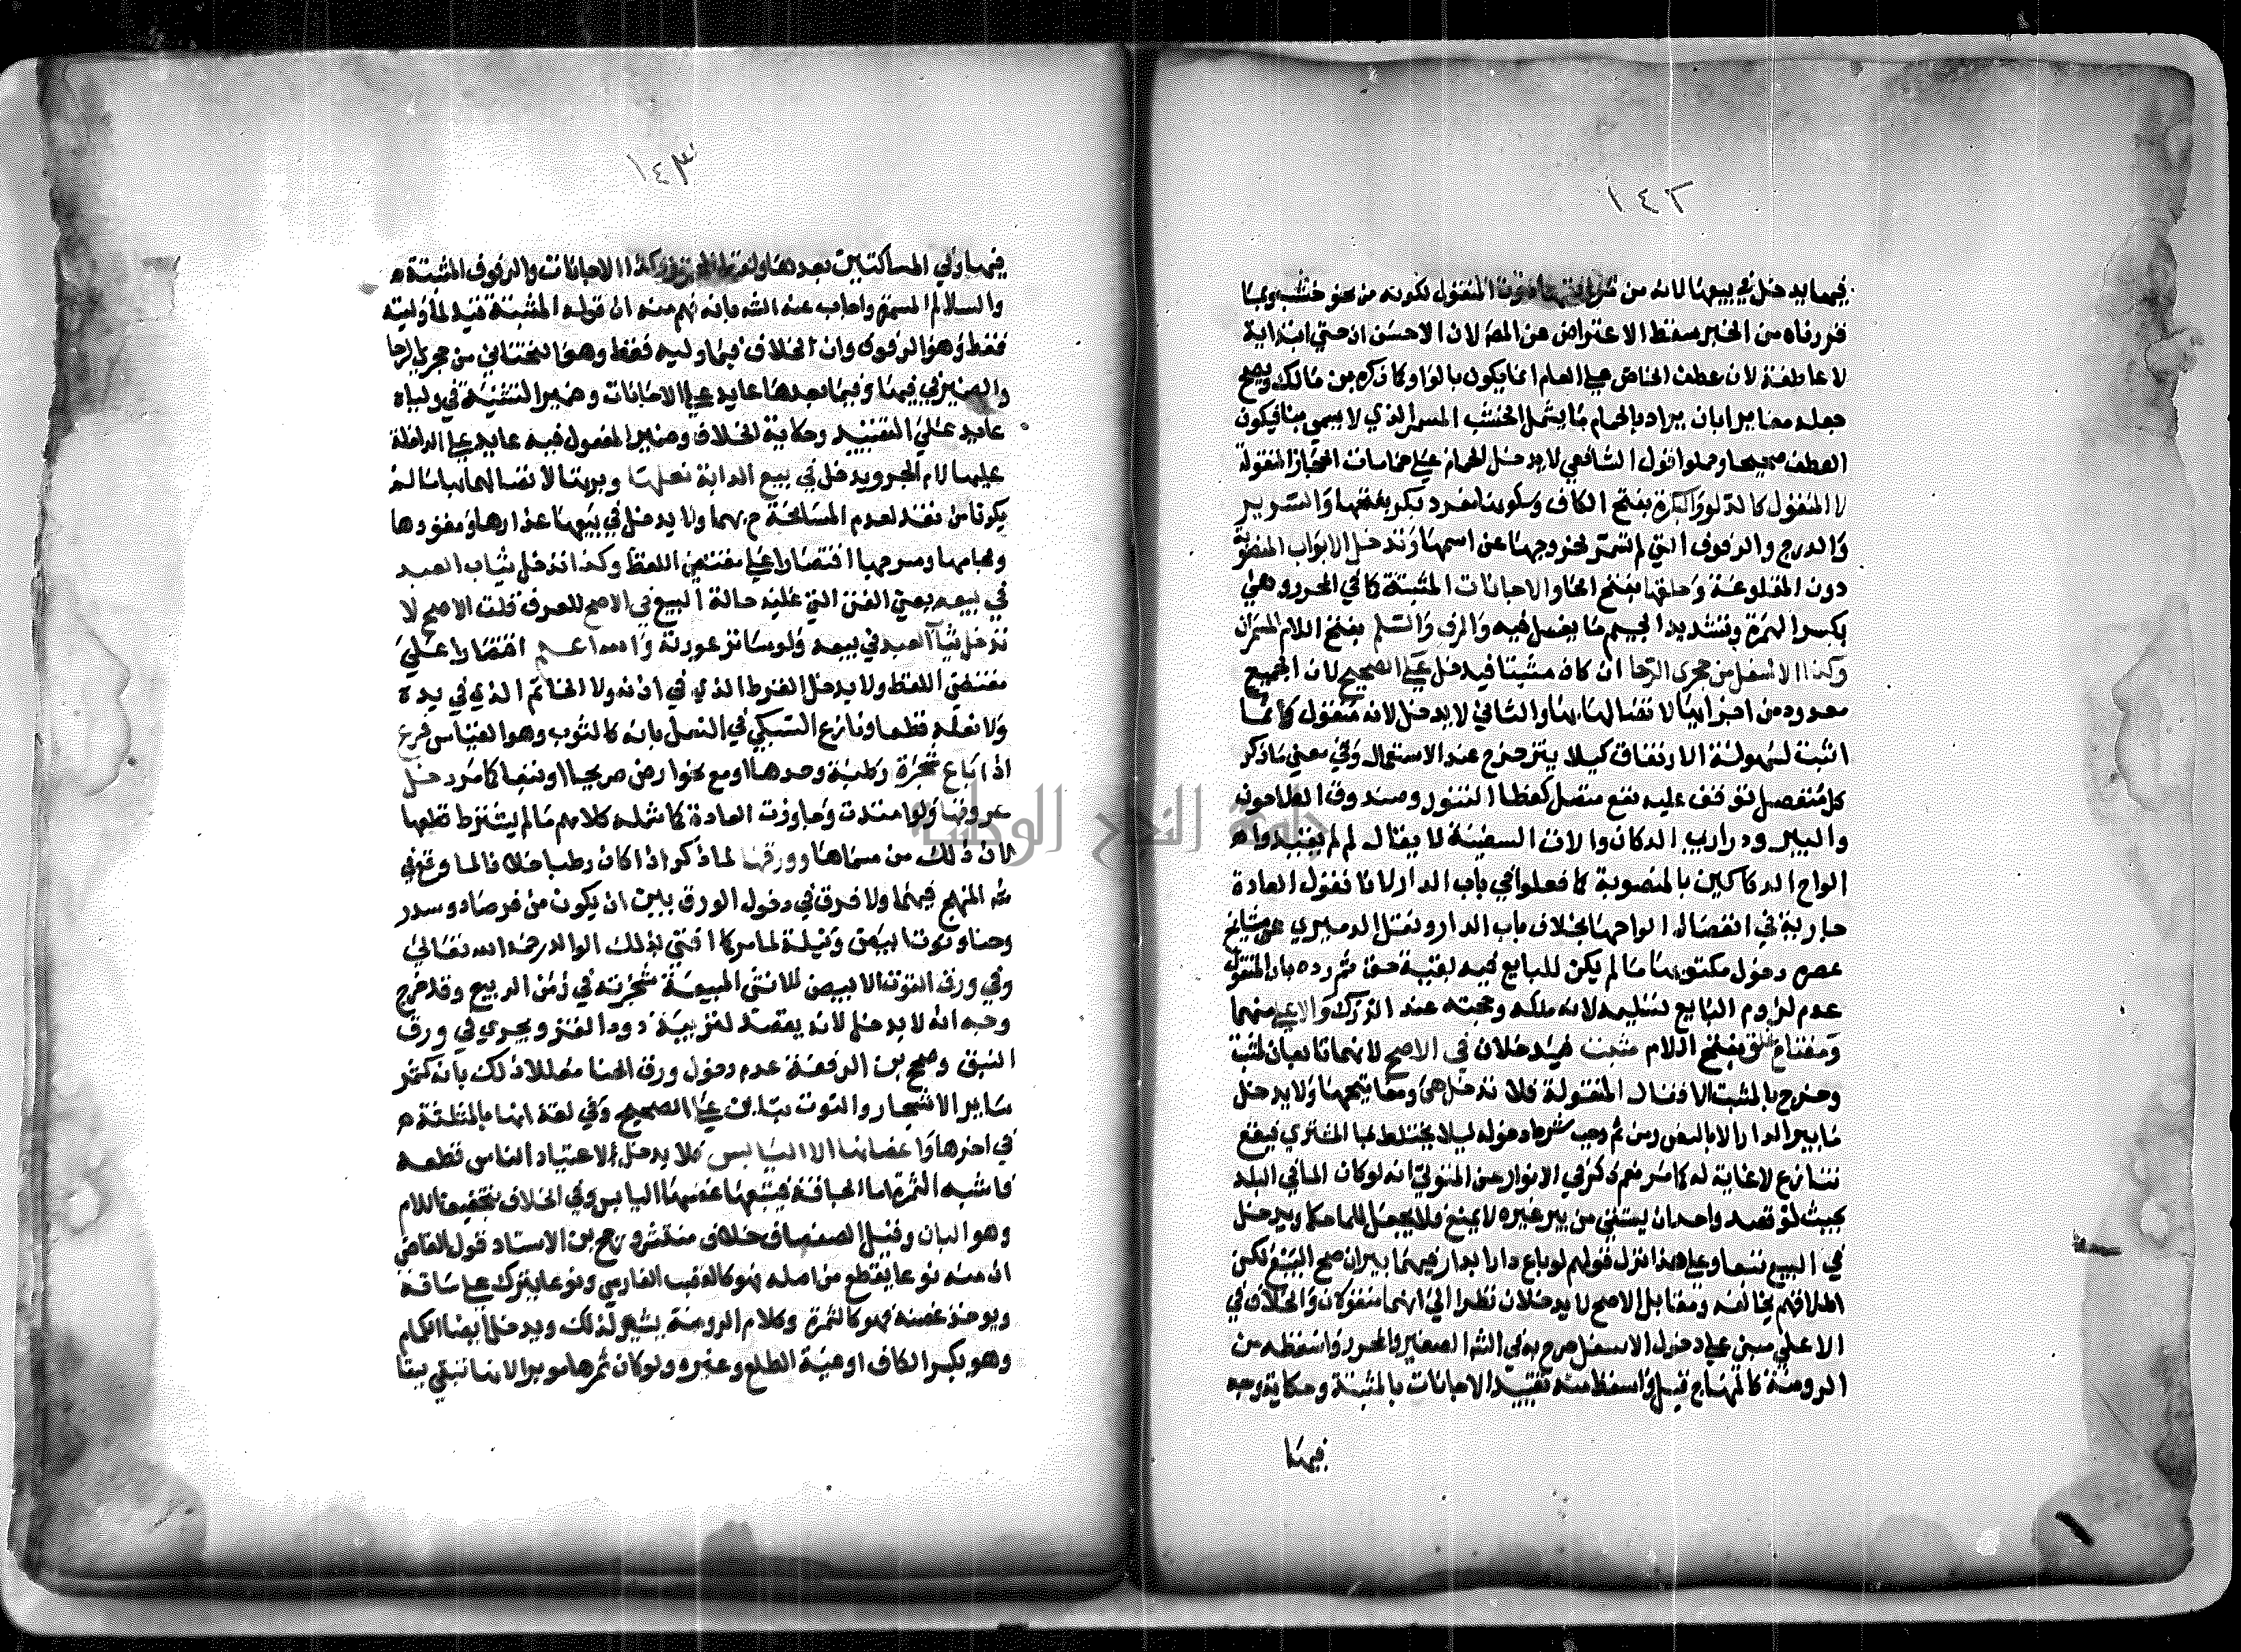 ١٤٢
فيما يدخل في بيعها لانه من المنقول لكونه من نحو خشب وبما
قررناه من الخبر سقط الاعتراض عن المص لان الاحسن ان حتي ابتدائية
لا عاطفة لان عطف الخاص علي العام انما يكون بالواو كما ذكره بن مالك ويصح
جعله مغايرا بان يراد بالحمام ما يشمل الخشب المسمر الذي لا يسمي بنا فيكون
العطف صحيحا وحملوا قول الشافعي لا يدخل الحمام علي حمامات الحجاز المنقولة
لا المنقول كالدلو والبكرة بفتح الكاف وسكونها مفرد بكر بفتحها والسرير
والدرج والرفوف التي لم تسمر لخروجها عن اسمها وتدخل الابواب المنصوبة
دون المقلوعة وحلقها بفتح الحا والاجانات المثبتة كما في المحرر وهي
بكسر الهمزة وتشديد الجيم ما يغسل فيه والرف والسلم بفتح اللام المسمران
وكذا الاسفل من حجري الرحا ان كان مثبتا فيدخل علي الصحيح لان الجميع
معدود من اجزايها لاتصالها بها والثاني لا يدخل لانه منقول وانما
اثبت لسهولة الارتفاق كيلا يتزحزح عند الاستعمال وفي معني ما ذكر
كل منفصل توقف عليه نفع متصل كغطا التنور وصندوق الطاحون
والبير ودراريب الدكان والات السفينة لا يقال لم لم يقيدوا
الواح الدكاكين بالمنصوبة كما فعلوا في باب الدار لانا نقول العادة
جارية في انفصال الواحها بخلاف باب الدار ونقل الدميري عن مشايخ
عصره دخول مكتوبها ما لم يكن للبايع فيه بقية حق ثم رده بان المنقول
عدم لزوم البايع تسليمه لانه ملكه وحجته عند الدرك والاعلي منهما
ومفتاح غلق بفتح اللام مثبت فيدخلان في الاصح لانهما تابعان لمثبت
وخرج بالمثبت الاقفال المنقولة فلا تدخل هي ومفاتيحها ولا يدخل
ما بير الدار الا بالنص ومن ثم وجب شرط دخوله ليلا يختلط بما المشتري فيقع
تنازع لا غاية له كما مر نعم ذكر في الانوار عن المتولي انه لو كان الما في البلد
بحيث لو قصد واحد ان يستقي من بير غيره لا يمنع فلا يجعل للما حكم ويدخل
في البيع تبعا وعلي هذا تنزل قولهم لو باع دارا بدار فيهما بيران صح البيع لكن
اطلاقهم يخالفه ومقابل الاصح لا يدخلان نظرا الي انهما منقولان والخلاف في
الاعلي مبني علي دخول الاسفل صرح به في الشرح الصغير والمحرر واسقطه من
الروضة كالمنهاج قيل واسقط منه تقييد الاجانات بالمثبتة وحكاية وجه
فيها
١٤٣
فيها وفي المسالتين بعدها ولفظ المحرر وكذا الاجانات والرفوف المثبتة
والسلالم المسمرة واجاب عنه الشه بانه فهم منه ان قوله المثبتة قيد لما وليته
فقط وهو الرفوف وان الخلاف فيما وليه فقط وهو التحتاني من حجري الرحا
والضمير في فيها وفيما بعدها عايد علي الاجانات وضمير التثنية في ولياه
عايد علي التقييد وحكاية الخلاف وضمير المفعول فيه عايد علي الداخلة
عليها لام الجر ويدخل في بيع الدابة نعلها وبرتها لاتصالهما بها ما لم
يكونا من نقد لعدم المسامحة ح بهما ولا يدخل في بيعها عذارها ومقودها
ولجامها وسرجها اقتصارا علي مقتضي اللفظ وكذا تدخل ثياب العبد
في بيعه يعني القن التي عليه حالة البيع في الاصح للعرف قلت الاصح لا
تدخل ثياب العبد في بيعه ولو ساتر عورته والله اعلم اقتصارا علي
مقتضي اللفظ ولا يدخل القرط الذي في اذنه ولا الخاتم الذي في يده
ولا نعله قطعا ونازع السبكي في النعل بانه كالثوب وهو القياس فرع
اذا باع شجرة رطبة وحدها او مع نحو ارض صريحا او تبعا كما مر دخل
عروقها ولو امتدت وجاوزت العادة كما شمله كلامهم ما لم يشترط قطعها
لان ذلك من مسماها وورقها لما ذكر اذا كان رطبا خلافا لما وقع في
شه المنهج فيهما ولا فرق في دخول الورق بين ان يكون من فرصاد وسدر
وحنا وتوت ابيض ونيلة لما مر كما افتي بذلك الوالد رحمه الله تعالي
وفي ورق التوت الابيض للانثي المبيعة شجرته في زمن الربيع وقد خرج
وجه انه لا يدخل لانه يقصد لتربية دود القز ويجري في ورق
النبق وصحح بن الرفعة عدم دخول ورق الحنا معللا ذلك بانه كثمر
ساير الاشجار والتوت بتاين علي الصحيح وفي لغة انها بالمثلثة
في اخرها واغصانها الا اليابس فلا يدخل لاعتياد الناس قطعه
فاشبه الثمرة اما الجافة فيتبعها غصنها اليابس وفي الخلاف بتخفيف اللام
وهو البان وقيل الصفصاف خلاف منتشر ورجح بن الاستاد قول القاضي
ان منه نوعا يقطع من اصله فهو كالقصب الفارسي ونوعا يترك علي ساقه
ويوخذ غصنه فهو كالثمرة وكلام الروضة يشير لذلك ويدخل ايضا الكمام
وهو بكسر الكاف اوعية الطلع وغيره ولو كان ثمرها موبرا لانها تبقي ببقا
جامعة النجاح الوطنية